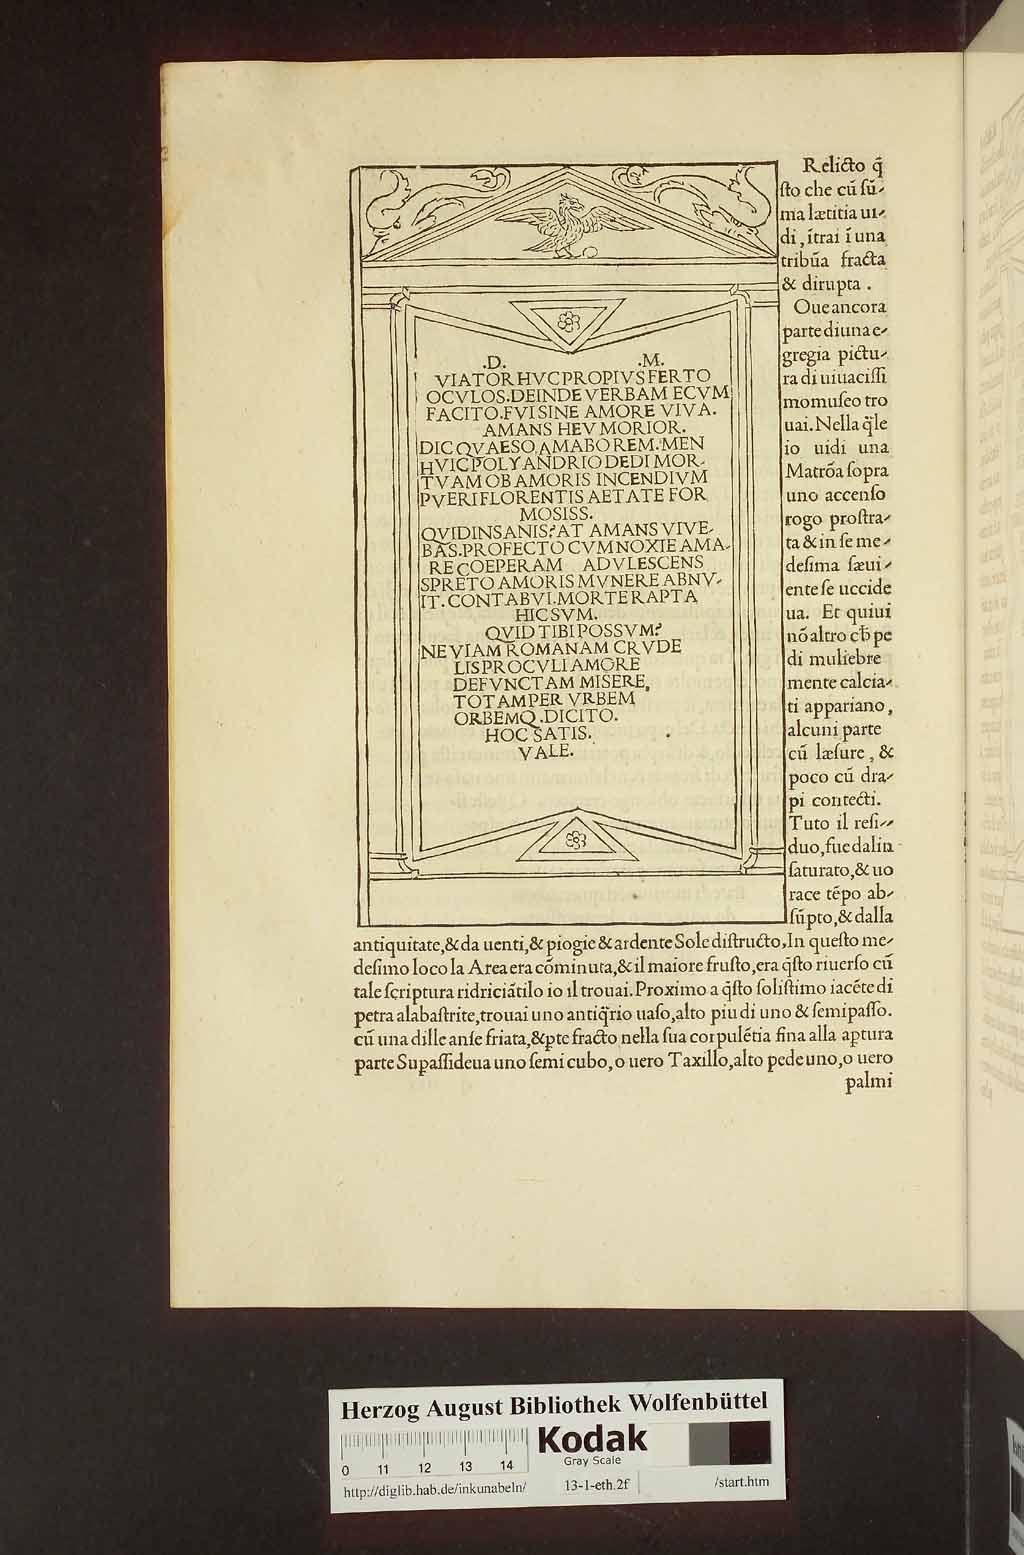 .D. .M.
VIATOR HVC PROPIVS FERTO
OCVLOS.DEINDE VERBA MECVM
FACITO.FVI SINE AMORE VIVA.
AMANS HEV MORIOR.
DIC QVAESO AMABO REM.MEN
HVIC POLYANDRIO DEDI MOR-
TVAM OB AMORIS INCENDIVM
PVERI FLORENTIS AETATE FOR
MOSISS.
QVID INSANIS? AT AMANS VIVE-
BAS.PROFECTO CVM NOXIE AMA-
RE COEPERAM ADVLESCENS
SPRETO AMORIS MVNERE ABNV-
IT. CONTABVI. MORTE RAPTA
HIC SVM.
QVID TIBI POSSVM?
NE VIAM ROMANAM CRVDE
LIS PROCVLI AMORE
DEFVNCTAM MISERE,
TOTAM PER VRBEM
ORBEMQ. DICITO.
HOC SATIS.
VALE.
Relicto q̃
ſto che cũ ſũ-
ma lætitia ui-
di, ĩtrai ĩ una
tribũa fracta
& dirupta .
Oue ancora
parte di una e-
gregia pictu-
ra di uiuaciſſi
mo muſeo tro
uai. Nella q̃le
io uidi una
Matrõa ſopra
uno accenſo
rogo proſtra-
ta & in ſe me-
deſima ſæui-
ente ſe uccide
ua. Et quiui
nõ altro cħ pe
di muliebre
mente calcia-
ti appariano,
alcuni parte
cũ læſure, &
poco cũ dra-
pi contecti.
Tuto il reſi-
duo, fue dal in
ſaturato, & uo
race tẽpo ab-
ſũpto, & dalla
antiquitate, & da uenti, & piogie & ardente Sole diſtructo, In queſto me-
deſimo loco la Area era cõminuta, & il maiore fruſto, era q̃ſto riuerſo cũ
tale ſcriptura ridriciãtilo io il trouai. Proximo a q̃ſto ſoliſtimo iacẽte di
petra alabaſtrite, trouai uno antiq̃rio uaſo, alto piu di uno & ſemipaſſo.
cũ una dille anſe friata, & ꝑte fracto nella ſua corpulẽtia fina alla aptura
parte Supaſſideua uno ſemi cubo, o uero Taxillo, alto pede uno, o uero
palmi
Herzog August Bibliothek Wolfenbüttel
0 11 12 13 14
Kodak
Gray Scale
http://diglib.hab.de/inkunabeln/ 13-1-eth.2f /start.htm